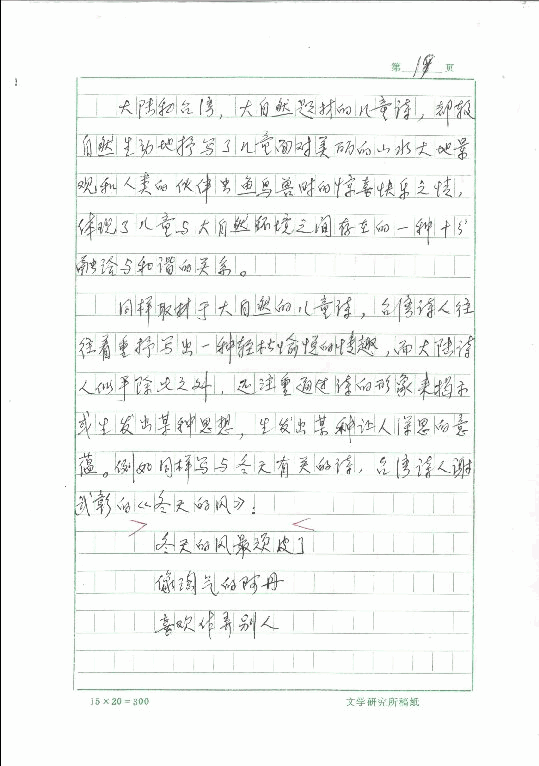 第 18 页
大陆和台湾，大自然题材的儿童诗，都较
自然生动地抒写了儿童面对美丽的山水大地景
观和人类的伙伴虫鱼鸟兽时的惊喜快乐之情，
体现了儿童与大自然环境之间存在的一种十分
融洽与和谐的关系。
同样取材于大自然的儿童诗，台湾诗人往
往着重抒写出一种轻松愉悦的情趣，而大陆诗
人似乎除此之外，还注重通过诗的形象来揭示
或生发出某种思想，生发出某种让人深思的意
蕴。例如同样写与冬天有关的诗，台湾诗人谢
武彰的《冬天的风》：
冬天的风最顽皮了
像淘气的阿丹
喜欢作弄别人
15×20=300
文学研究所稿纸